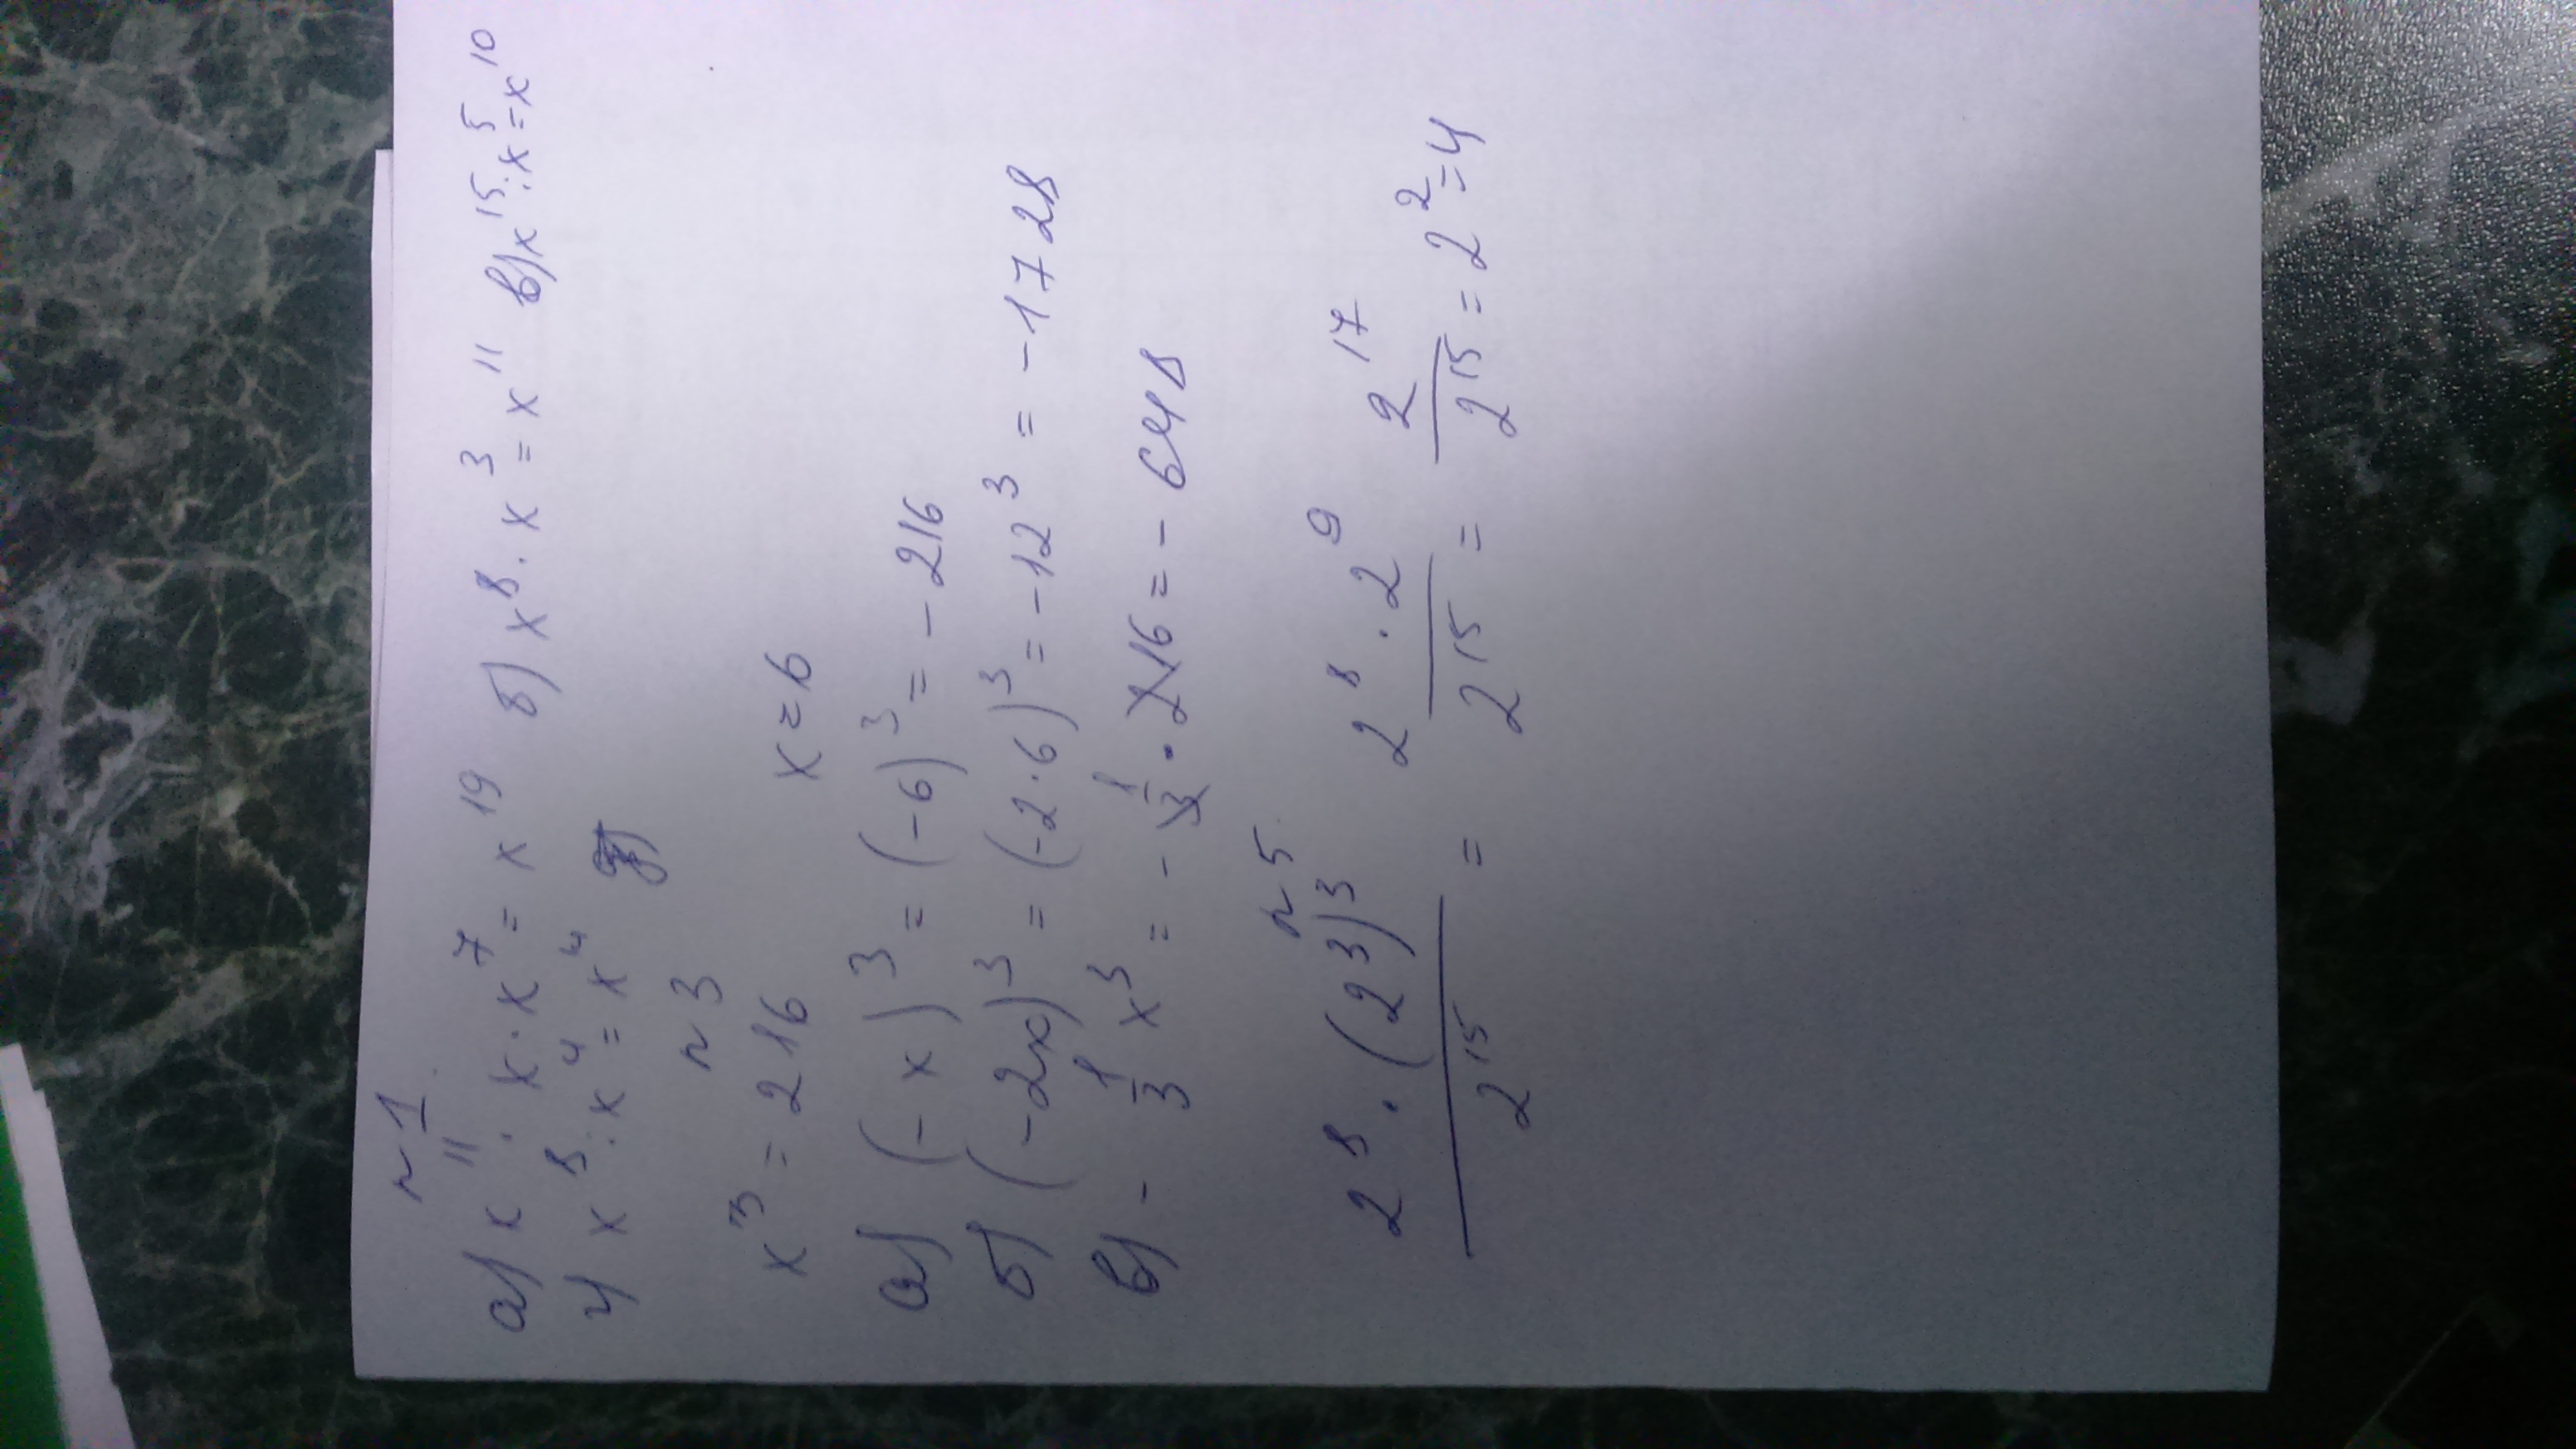 N 1
а) x¹¹ · x · x⁷ = x¹⁹ б) x⁸ · x³ = x¹¹ в) x¹⁵ : x⁵ = x¹⁰
г) x⁸ : x⁴ = x⁴
N 3
x³ = 216 x = 6
а) (-x)³ = (-6)³ = -216
б) (-2x)³ = (-2·6)³ = -12³ = -1728
в) - 1/3 x³ = - 1/3 · 216 = - 648
N 5
2⁸ · (2³)³ / 2¹⁵ = 2⁸ · 2⁹ / 2¹⁵ = 2¹⁷ / 2¹⁵ = 2² = 4